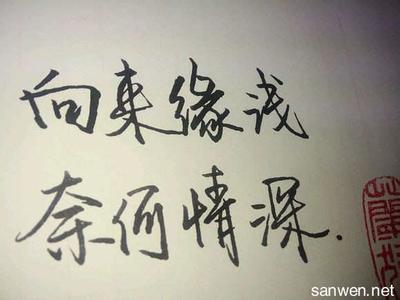 向来缘浅
奈何情深.
sanwen.net